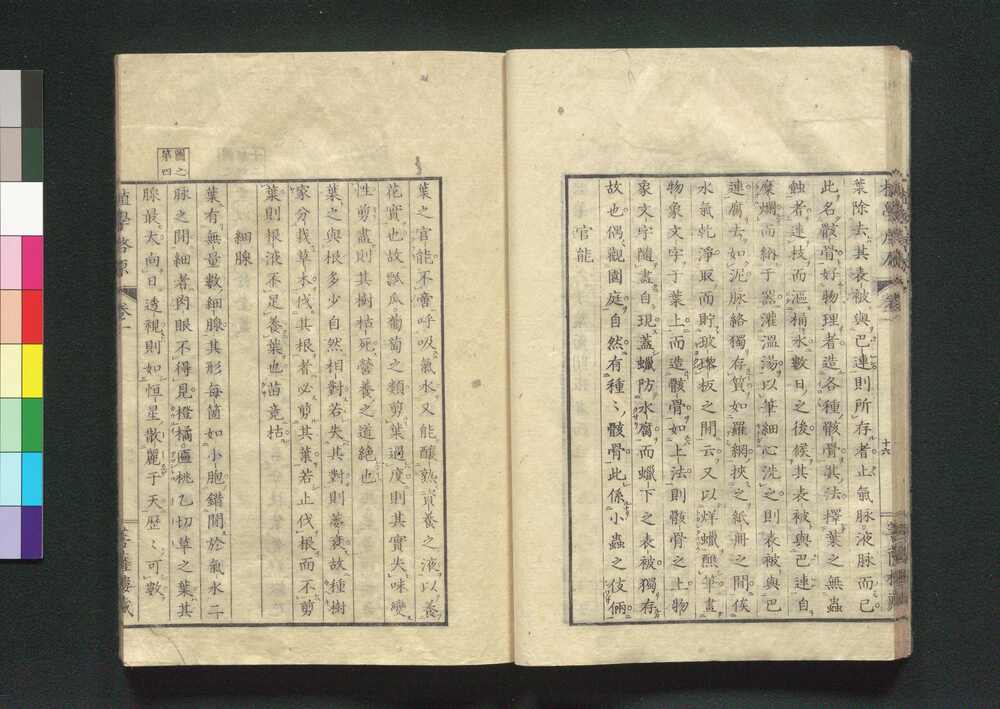 葉除去其表被與巴連則所存者止氣脉液脉而已
此名骸骨好物理者造各種骸骨其法擇葉之無蟲
蝕者連枝而漚桶水數日之後候其表被與巴連自
糜爛而納于器灌溫湯以筆細心洗之則表被與巴
連腐去如泥脉絡獨存質如羅網挾之紙冊之間俟
水氣乾淨取而貯玻瓈板之間云又以烊蠟醮筆畫
物象文字于葉上而造骸骨如上法則骸骨之上物
象文字隨畫自現蓋蠟防水腐而蠟下之表被獨存
故也偶觀園庭自然有種〻骸骨此係小蟲之伎倆
官能
十六
葉之官能不啻呼吸氣水又能釀熟資養之液以養
花實也故瓢瓜葡萄之類剪葉過度則其實失味變
性剪盡則其樹枯死營養之道絶也
葉之與根多少自然相對若失其對則萎衰故種樹
家分栽草木伐其根者必剪其葉若止伐根而不剪
葉則根液不足養葉也苗竟枯
細腺
葉有無量數細腺其形每箇如小胞錯間於氣水二
脉之間細者肉眼不得見橙橘匾桃乙切草之葉其
腺最大向日透視則如恒星散麗于天歷〻可數
圖之
第四
植學啓原 卷一